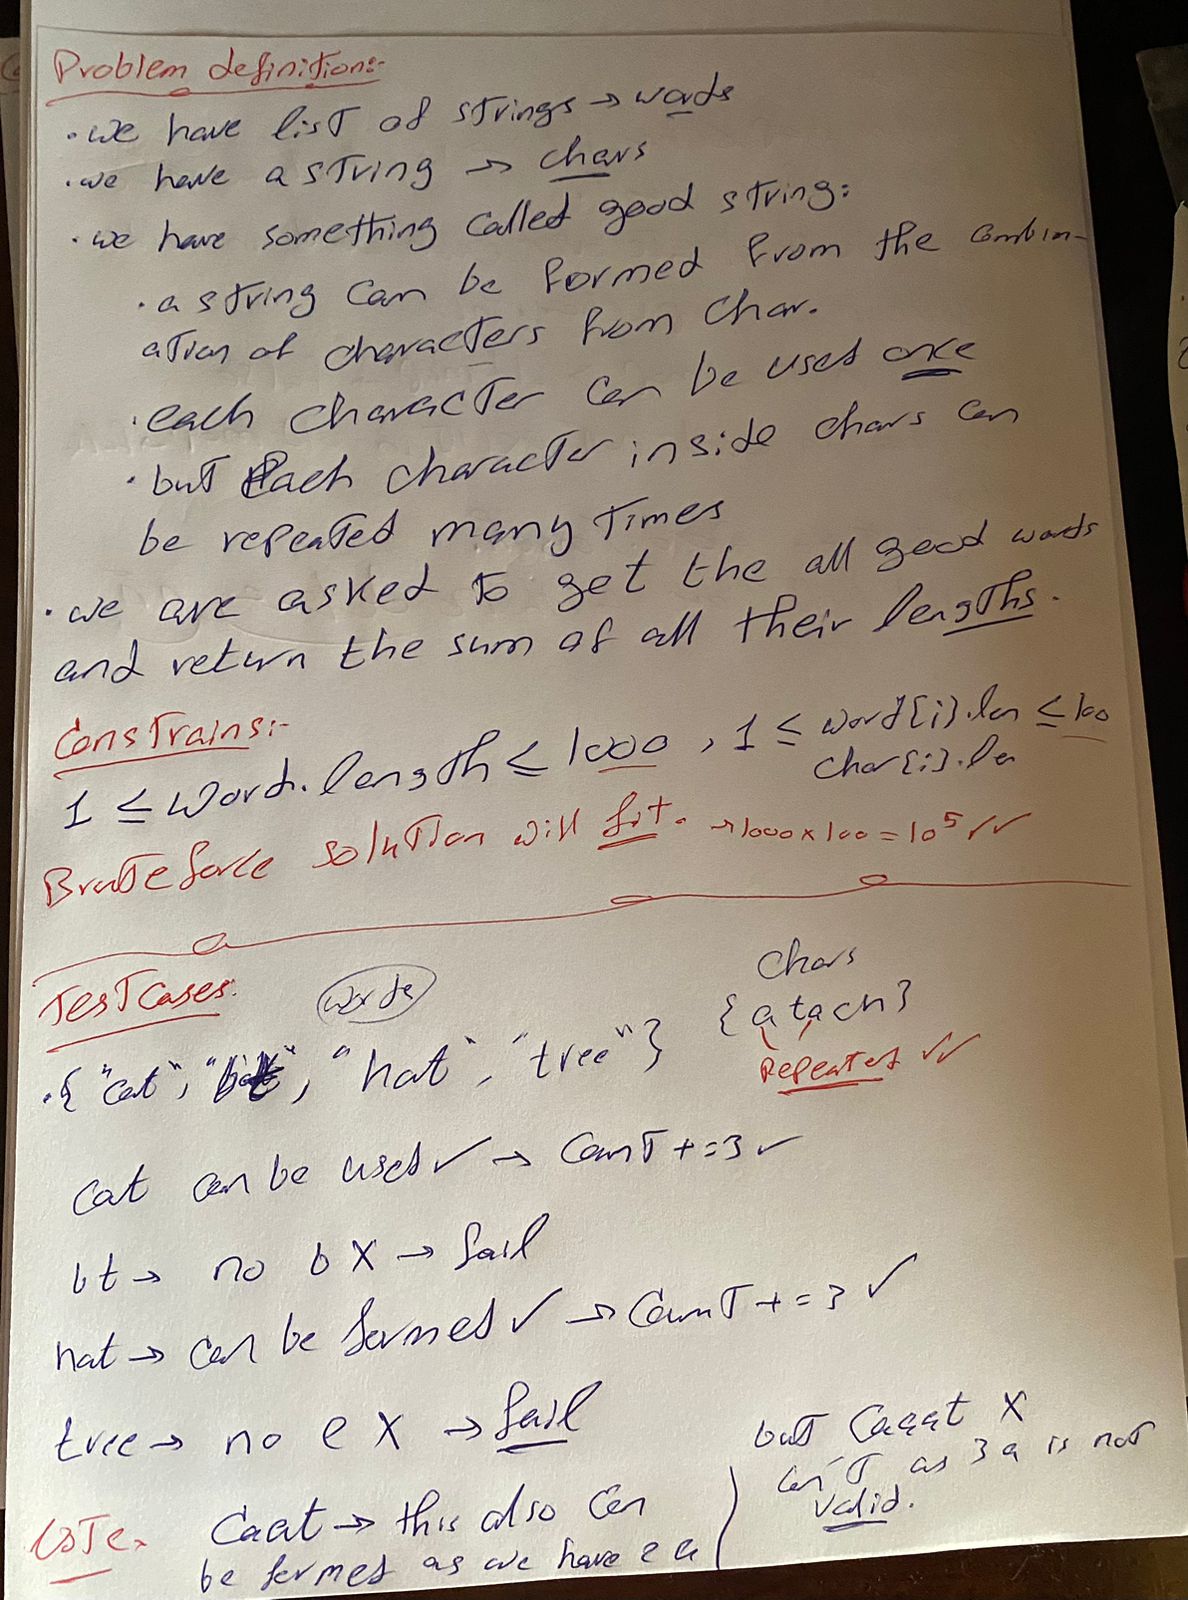 Problem definition:-
• we have list of strings → words
• we have a string → chars
• we have something called good string:
• a string can be formed from the combin-
ation of characters from char.
• each character can be used once
• but each character inside chars can
be repeated many times
• we are asked to get the all good words
and return the sum of all their lengths.
Constrains:-
1 ≤ word.length ≤ 1000 , 1 ≤ word[i].len ≤ 100
char[i].len
Brute force solution will fit. → 1000 x 100 = 10^5 ✓✓
Test Cases:
words
chars
• { "cat", "bt", "hat", "tree" }
{ atach }
Repeated ✓✓
cat can be used ✓ → count += 3 ✓
bt → no b X → fail
hat → can be formed ✓ → count += 3 ✓
tree → no e X → fail
Note: caat → this also can
be formed as we have 2 a
but caaat X
can't as 3 a is not
valid.